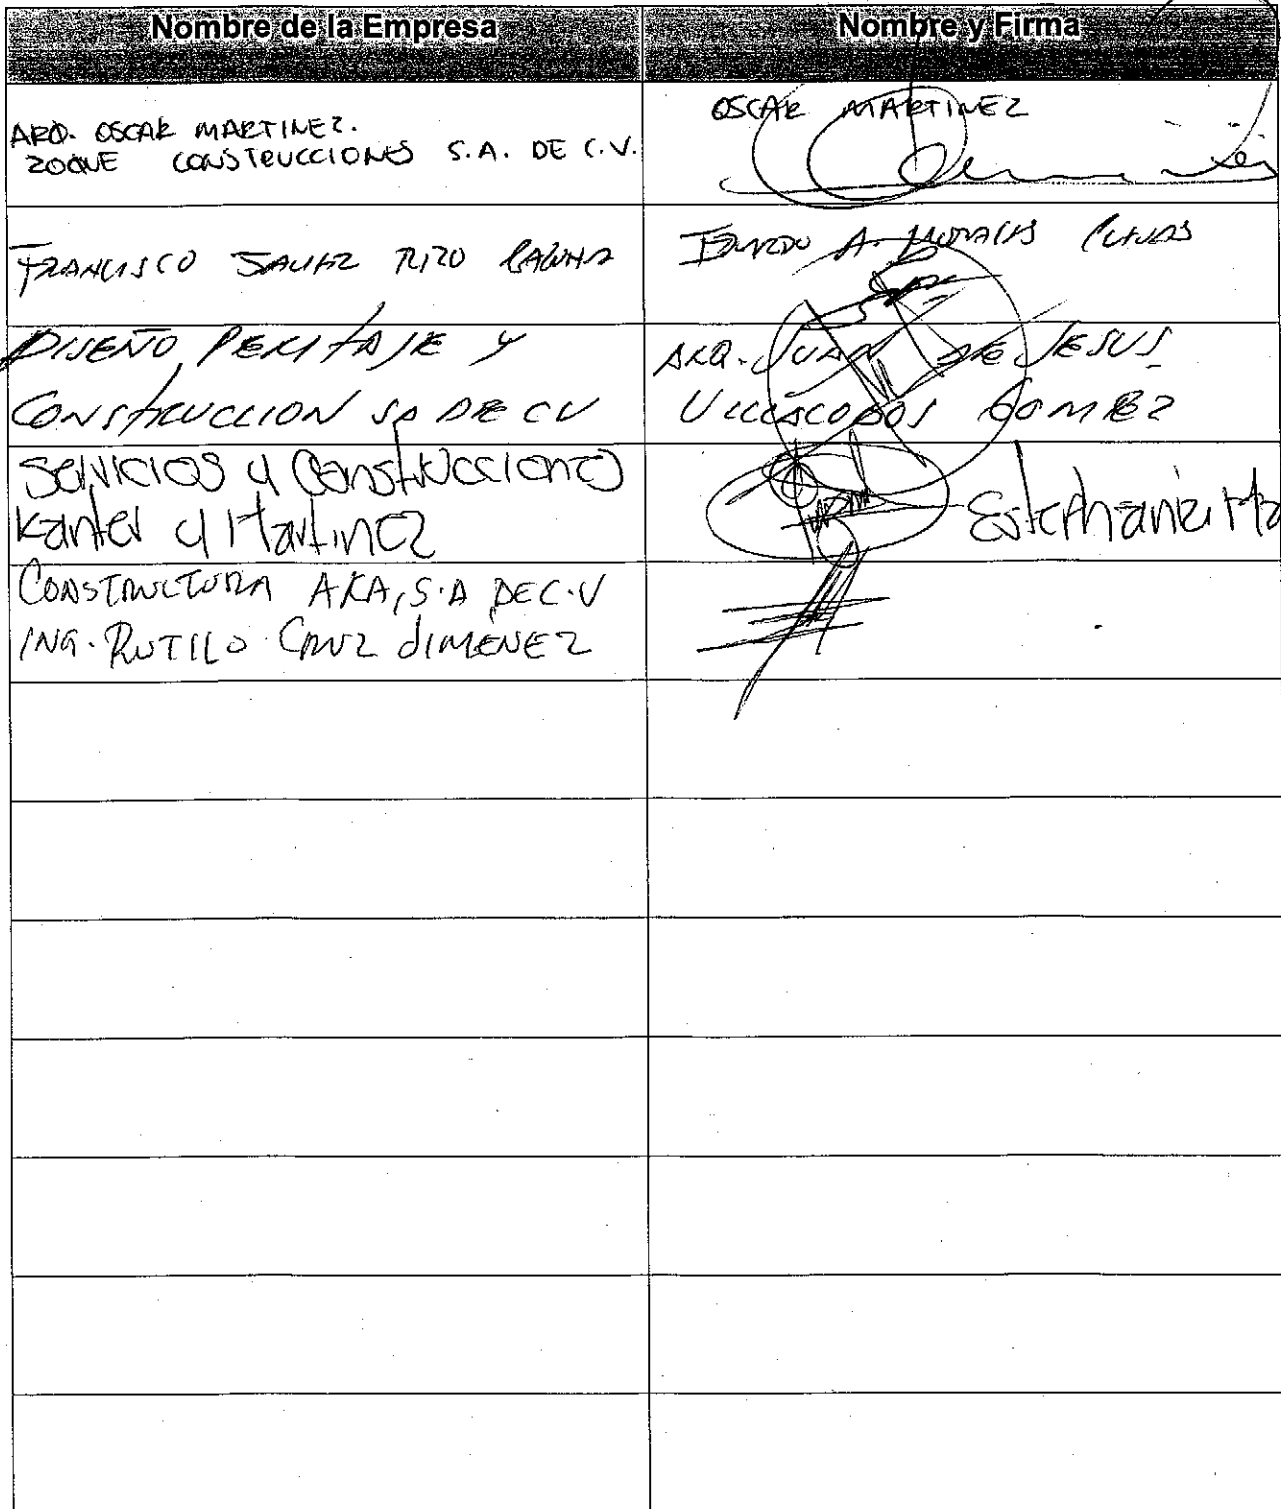 Nombre de la Empresa
Nombre y Firma
ARQ. OSCAR MARTINEZ.
ZOQUE CONSTRUCCIONES S.A. DE C.V.
OSCAR MARTINEZ
FRANCISCO JAVIER RIZO
A. MORALES
DISEÑO, PERITAJE Y
CONSTRUCCION SA DE CV
ARQ. JUAN DE JESUS
VILLACOBOS GOMEZ
Servicios y Construcciones
Kanter y Martinez
Estephanie Ma
CONSTRUCTORA AKA, S.A DE C.V
ING. RUTILO CRUZ JIMENEZ